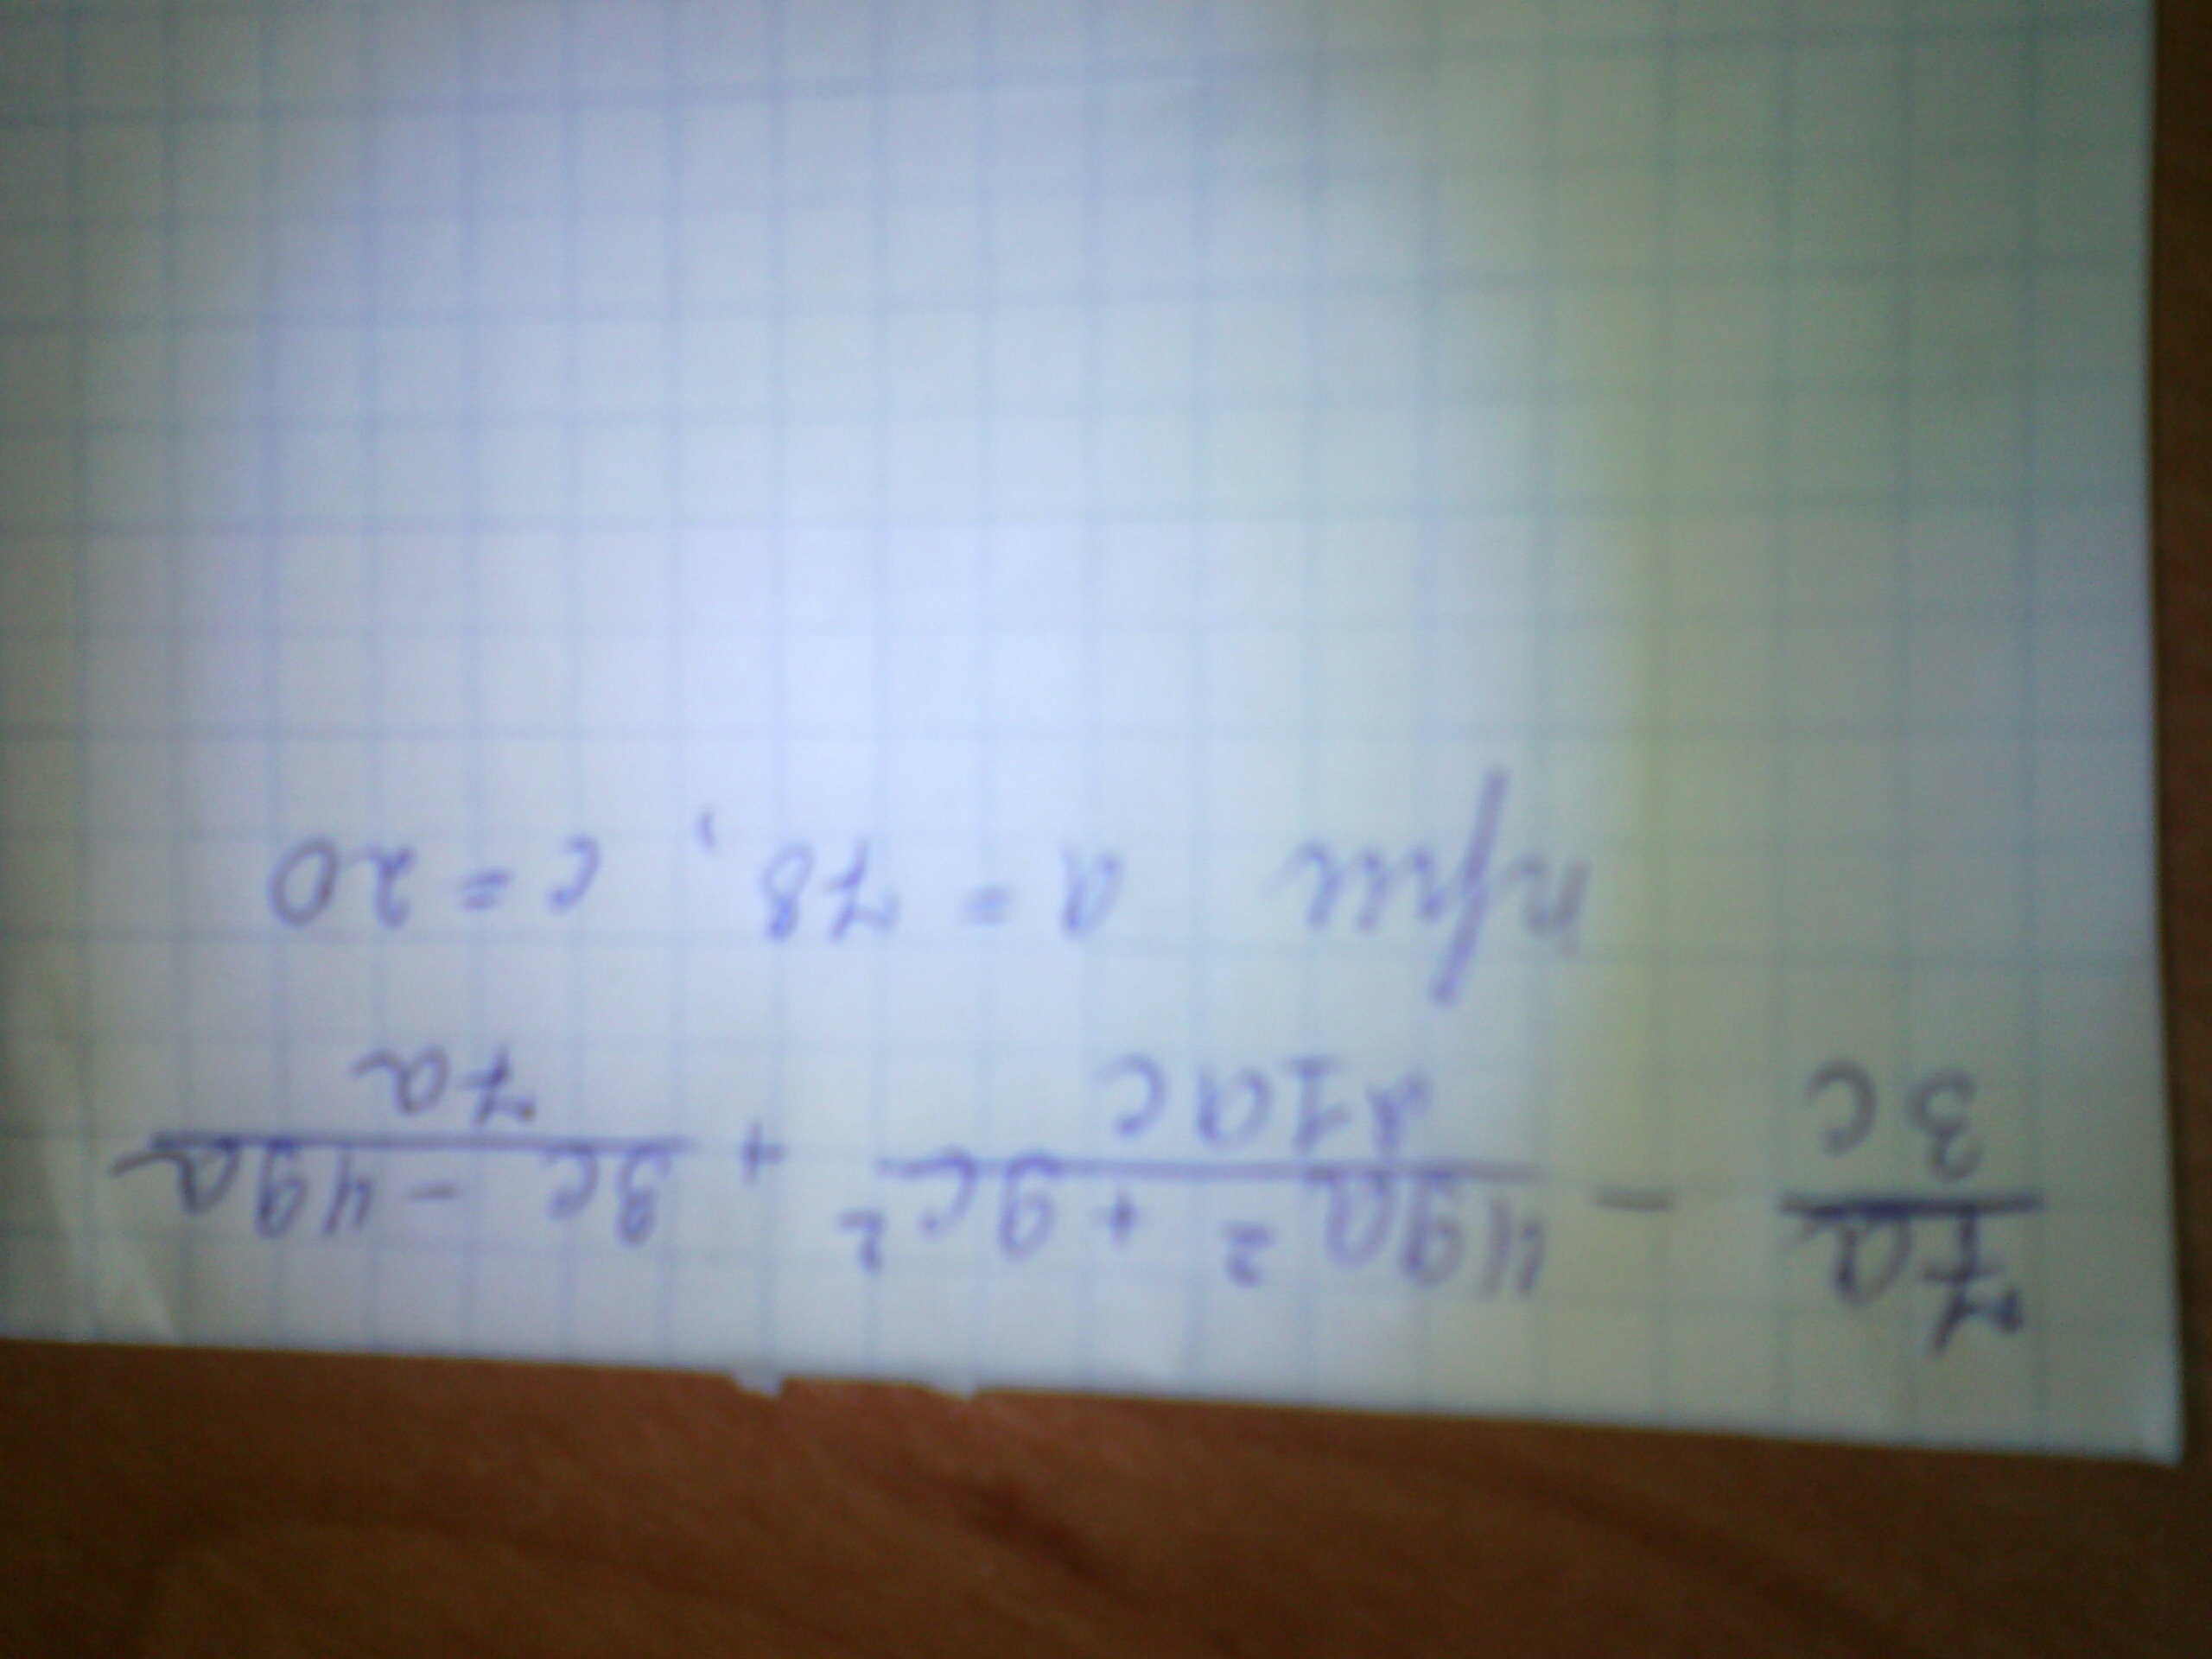 7a/3c - 49a² + 9c²/21ac + 3c - 49a/7a
при a = 78, c = 20